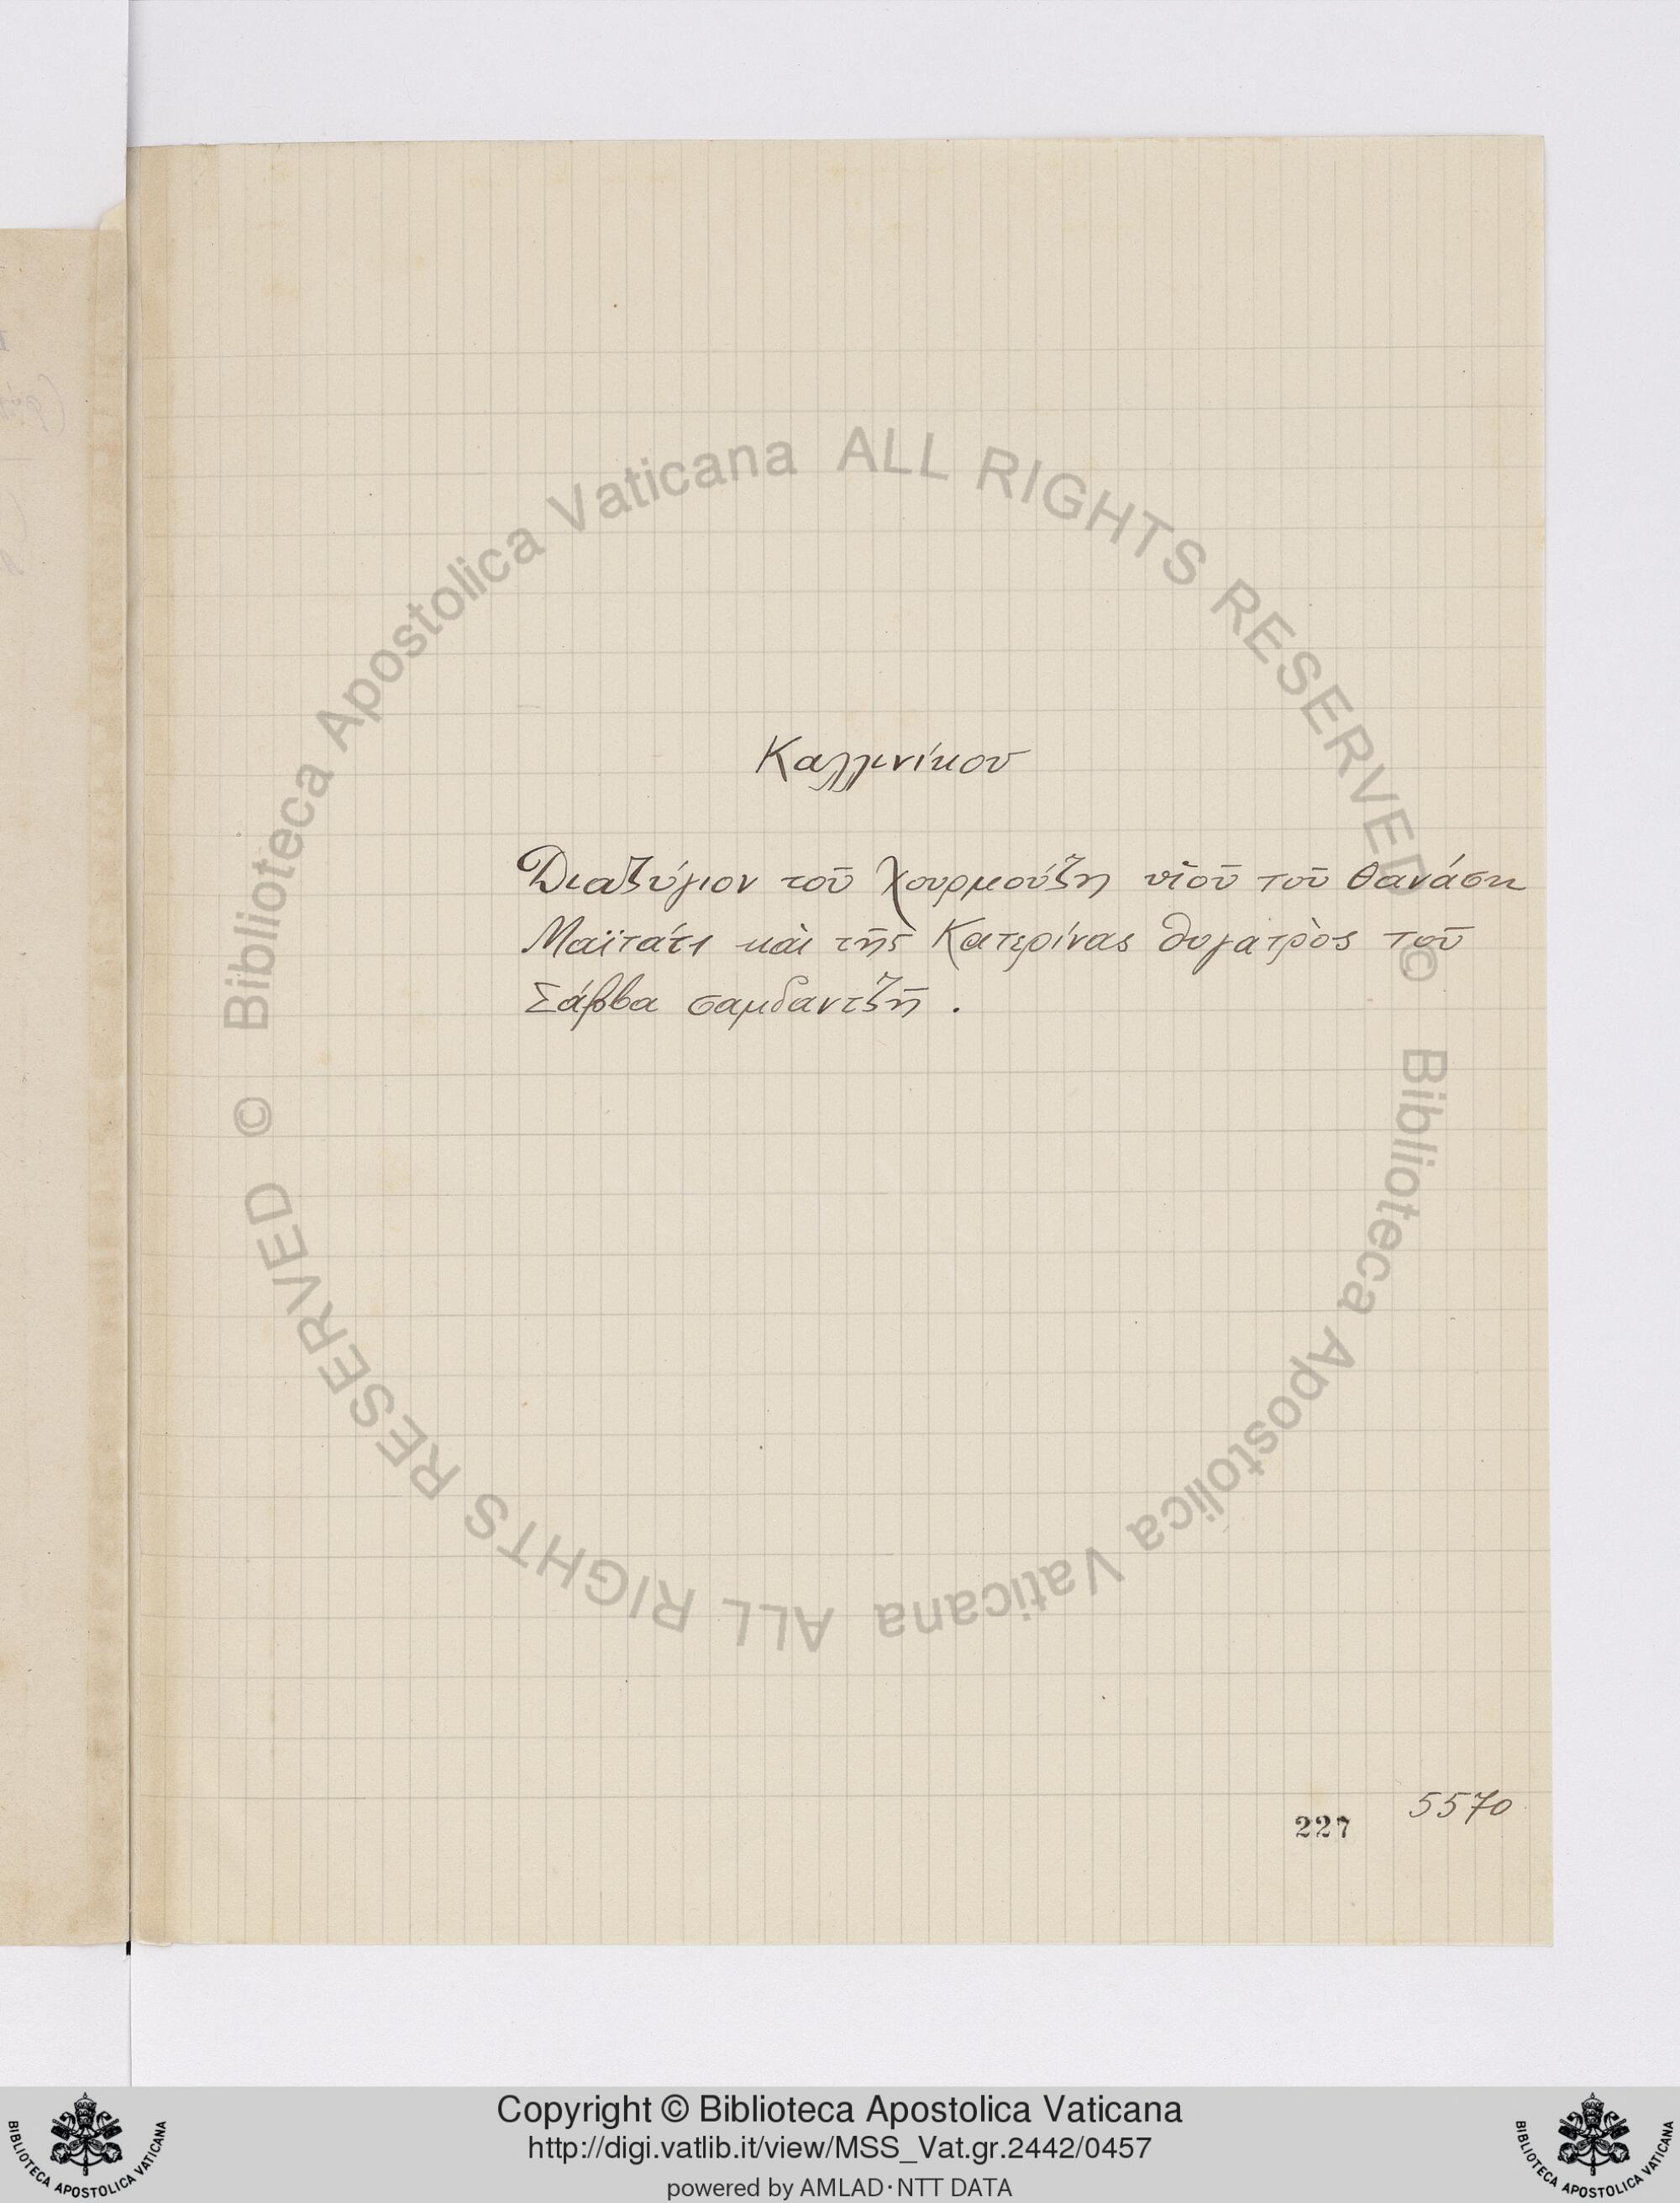 Καλλινίκου
Διαζύγιον τοῦ Χουρμούζη υἱοῦ τοῦ Θανάση
Μαϊτάτι καὶ τῆς Κατερίνας θυγατρὸς τοῦ
Σάββα σαμδαντζῆ .
5570
227
Biblioteca Apostolica Vaticana ALL RIGHTS RESERVED ©
Biblioteca Apostolica Vaticana ALL RIGHTS RESERVED ©
Copyright © Biblioteca Apostolica Vaticana
http://digi.vatlib.it/view/MSS_Vat.gr.2442/0457
powered by AMLAD·NTT DATA
BIBLIOTECA APOSTOLICA VATICANA
BIBLIOTECA APOSTOLICA VATICANA